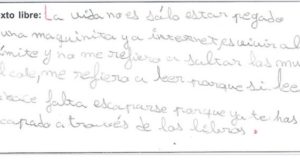 xto libre: La vida no es sólo estar pegado
una maquinita y a internet, es vivir al
mite y no me refiero a saltar los mu
l cole, me refiero a leer porque si lee
hace falta escaparse porque ya te has
capado a través de los libros.